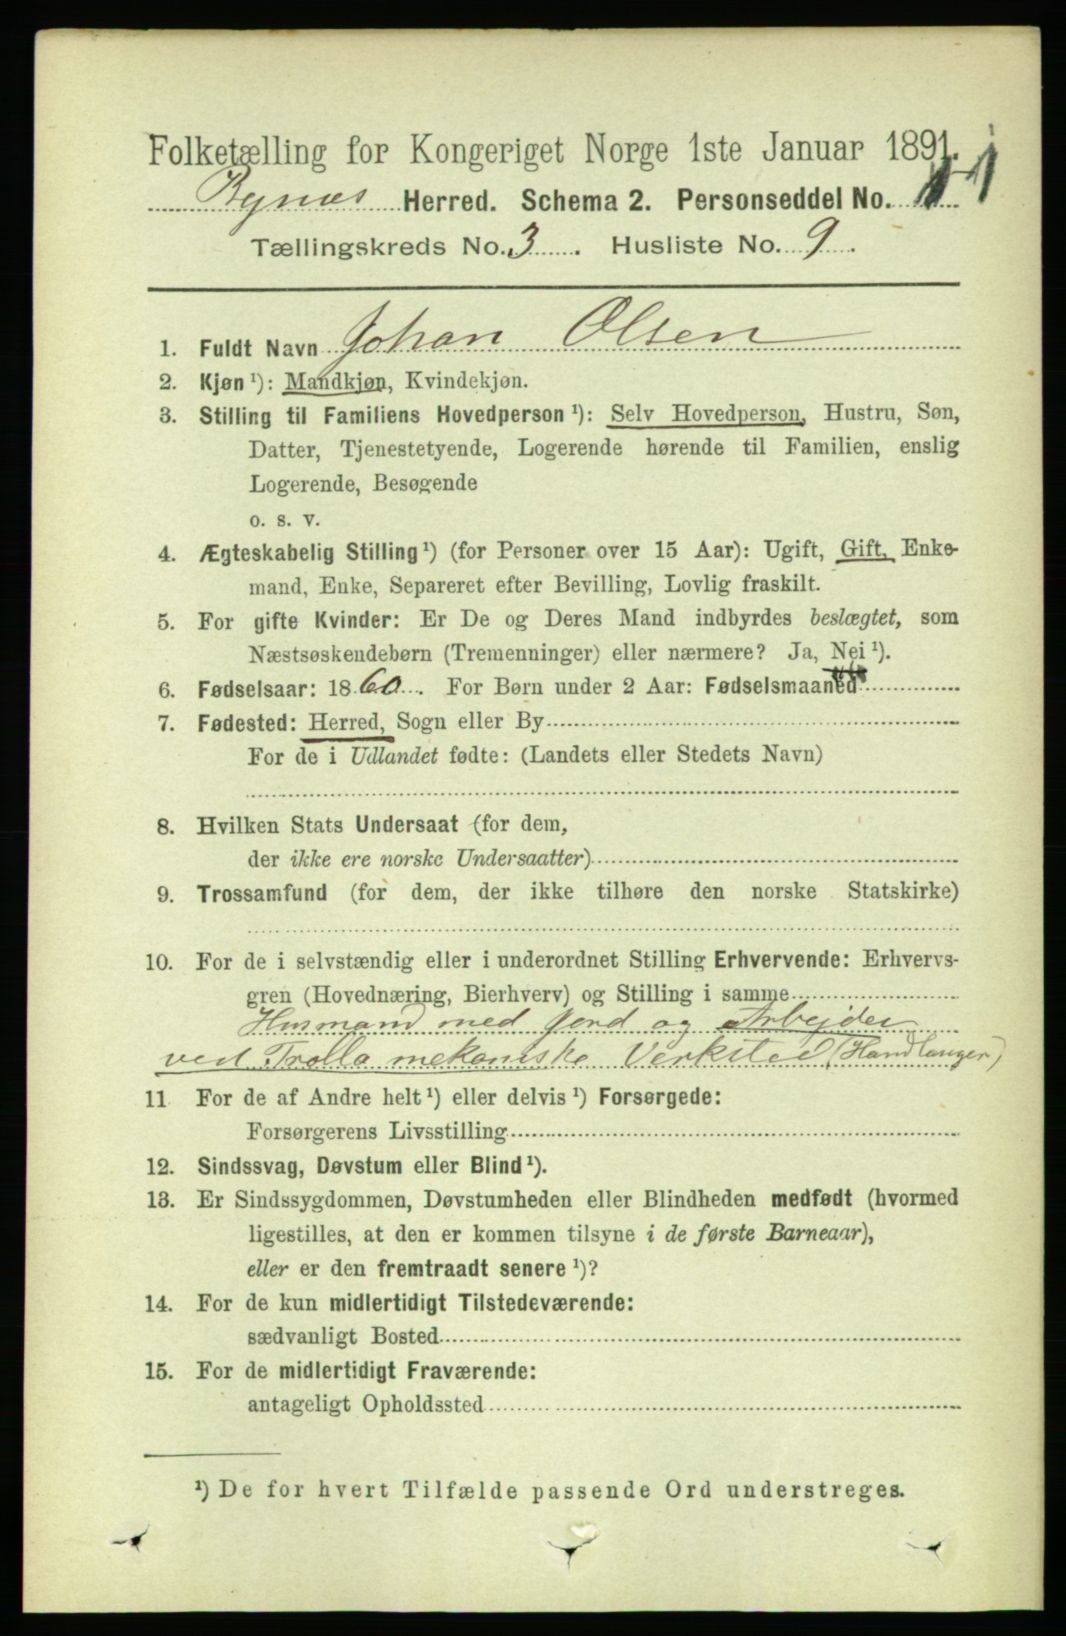 Folketælling for Kongeriget Norge 1ste Januar 1891.
Bynæs Herred. Schema 2. Personseddel No.
Tællingskreds No. 3. Husliste No. 9.
1. Fuldt Navn Johan Olsen
2. Kjøn ¹): Mandkjøn, Kvindekjøn.
3. Stilling til Familiens Hovedperson ¹): Selv Hovedperson, Hustru, Søn,
Datter, Tjenestetyende, Logerende hørende til Familien, enslig
Logerende, Besøgende
o. s. v.
4. Ægteskabelig Stilling ¹) (for Personer over 15 Aar): Ugift, Gift, Enke-
mand, Enke, Separeret efter Bevilling, Lovlig fraskilt.
5. For gifte Kvinder: Er De og Deres Mand indbyrdes beslægtet, som
Næstsøskendebørn (Tremenninger) eller nærmere? Ja, Nei ¹).
6. Fødselsaar: 1860. For Børn under 2 Aar: Fødselsmaaned
7. Fødested: Herred, Sogn eller By
For de i Udlandet fødte: (Landets eller Stedets Navn)
8. Hvilken Stats Undersaat (for dem,
der ikke ere norske Undersaatter)
9. Trossamfund (for dem, der ikke tilhøre den norske Statskirke)
10. For de i selvstændig eller i underordnet Stilling Erhvervende: Erhvervs-
gren (Hovednæring, Bierhverv) og Stilling i samme
Husmand med Jord og Arbejder
ved Trolla mekaniske Verksted (Handlanger)
11 For de af Andre helt ¹) eller delvis ¹) Forsørgede:
Forsørgerens Livsstilling
12. Sindssvag, Døvstum eller Blind ¹).
13. Er Sindssygdommen, Døvstumheden eller Blindheden medfødt (hvormed
ligestilles, at den er kommen tilsyne i de første Barneaar),
eller er den fremtraadt senere ¹)?
14. For de kun midlertidigt Tilstedeværende:
sædvanligt Bosted
15. For de midlertidigt Fraværende:
antageligt Opholdssted
¹) De for hvert Tilfælde passende Ord understreges.